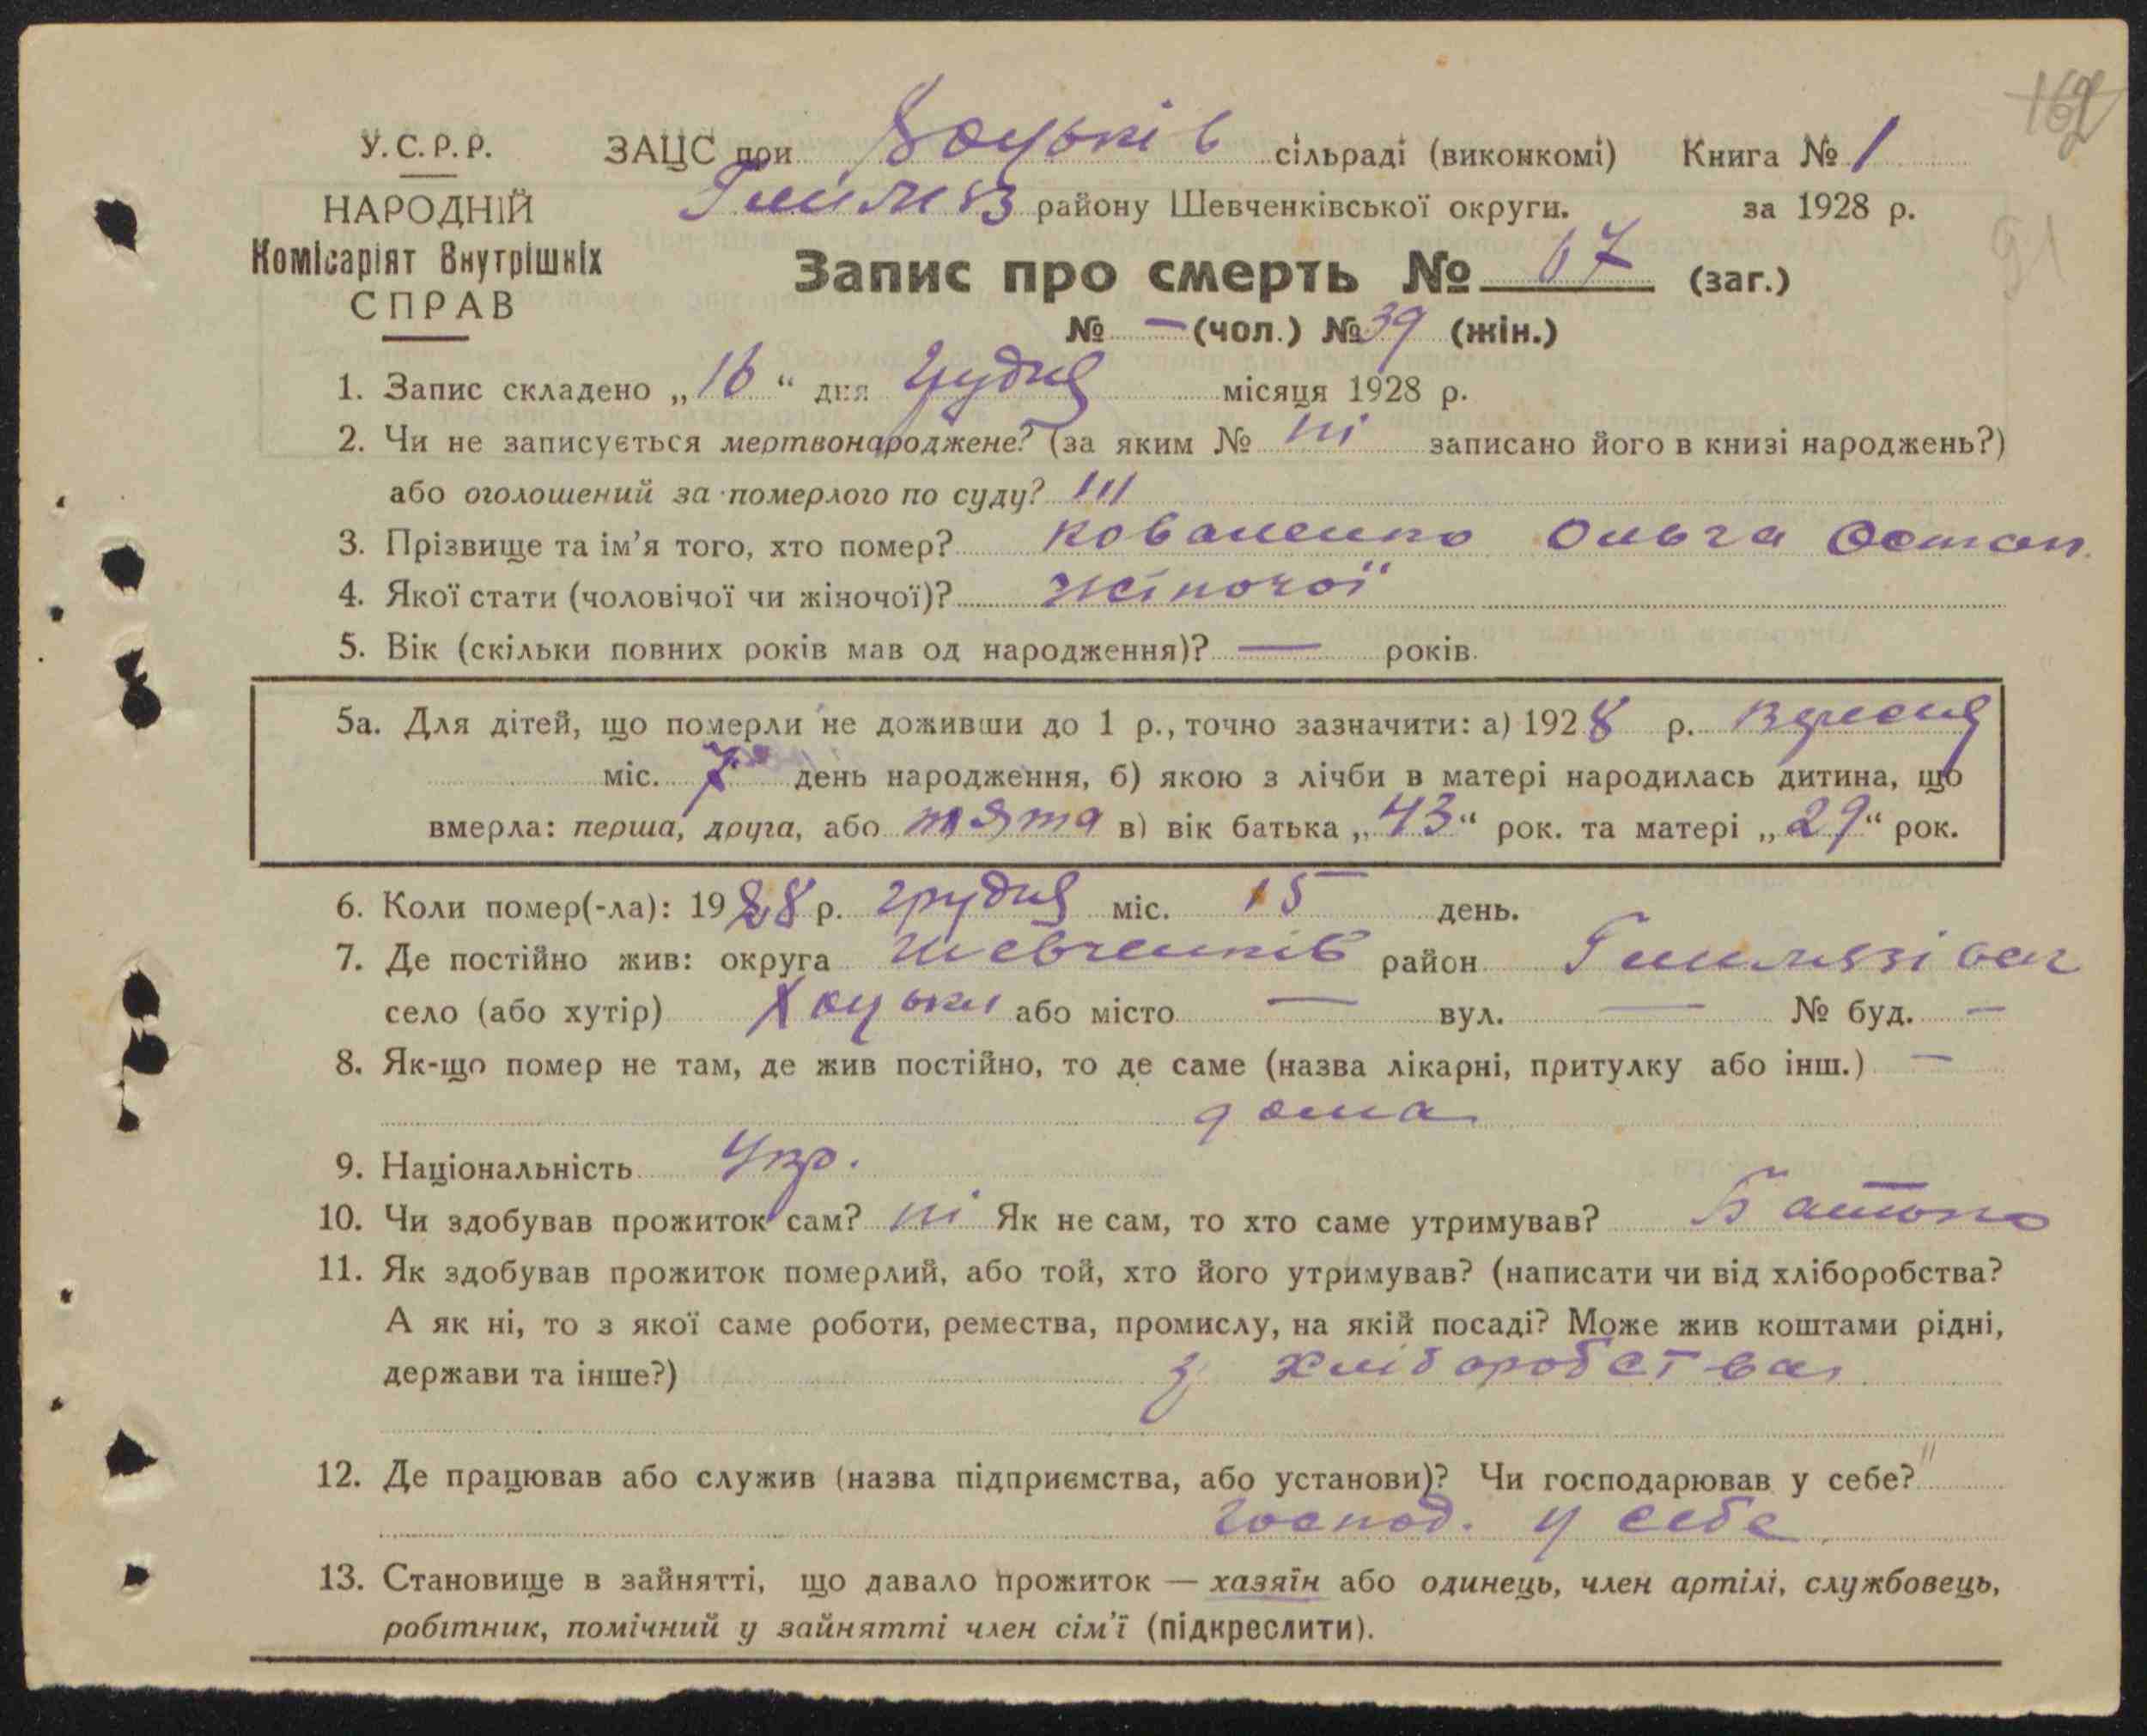 162
У.С.Р.Р. ЗАЦС при Хоцьків сільраді (виконкомі) Книга № 1
НАРОДНІЙ Гельмяз району Шевченківської округи. за 1928 р.
91
Комісаріят Внутрішніх
СПРАВ
Запис про смерть № 67 (заг.)
№ — (чол.) № 39 (жін.)
1. Запис складено „16“ дня грудня місяця 1928 р.
2. Чи не записується мертвонароджене? (за яким № ні записано його в книзі народжень?)
або оголошений за померлого по суду? ні
3. Прізвище та ім’я того, хто помер? Коваленко Ольга Остап.
4. Якої стати (чоловічої чи жіночої)? жіночої
5. Вік (скільки повних років мав од народження)? — років.
5а. Для дітей, що померли не доживши до 1 р., точно зазначити: а) 1928 р. вересня
міс. 7 день народження, б) якою з лічби в матері народилась дитина, що
вмерла: перша, друга, або пята в) вік батька „43“ рок. та матері „29“ рок.
6. Коли помер(-ла): 1928 р. грудня міс. 15 день.
7. Де постійно жив: округа Шевченків район
село (або хутір) Хоцьки або місто — вул. — № буд. —
8. Як-що помер не там, де жив постійно, то де саме (назва лікарні, притулку або інш.) —
дома
9. Національність Укр.
10. Чи здобував прожиток сам? ні Як не сам, то хто саме утримував? Батько
11. Як здобував прожиток померлий, або той, хто його утримував? (написати чи від хліборобства?
А як ні, то з якої саме роботи, ремества, промислу, на якій посаді? Може жив коштами рідні,
держави та інше?) з хліборобства
12. Де працював або служив (назва підприємства, або установи)? Чи господарював у себе?
господ. у себе
13. Становище в зайнятті, що давало прожиток — хазяїн або одинець, член артілі, службовець,
робітник, помічний у зайнятті член сім’ї (підкреслити).